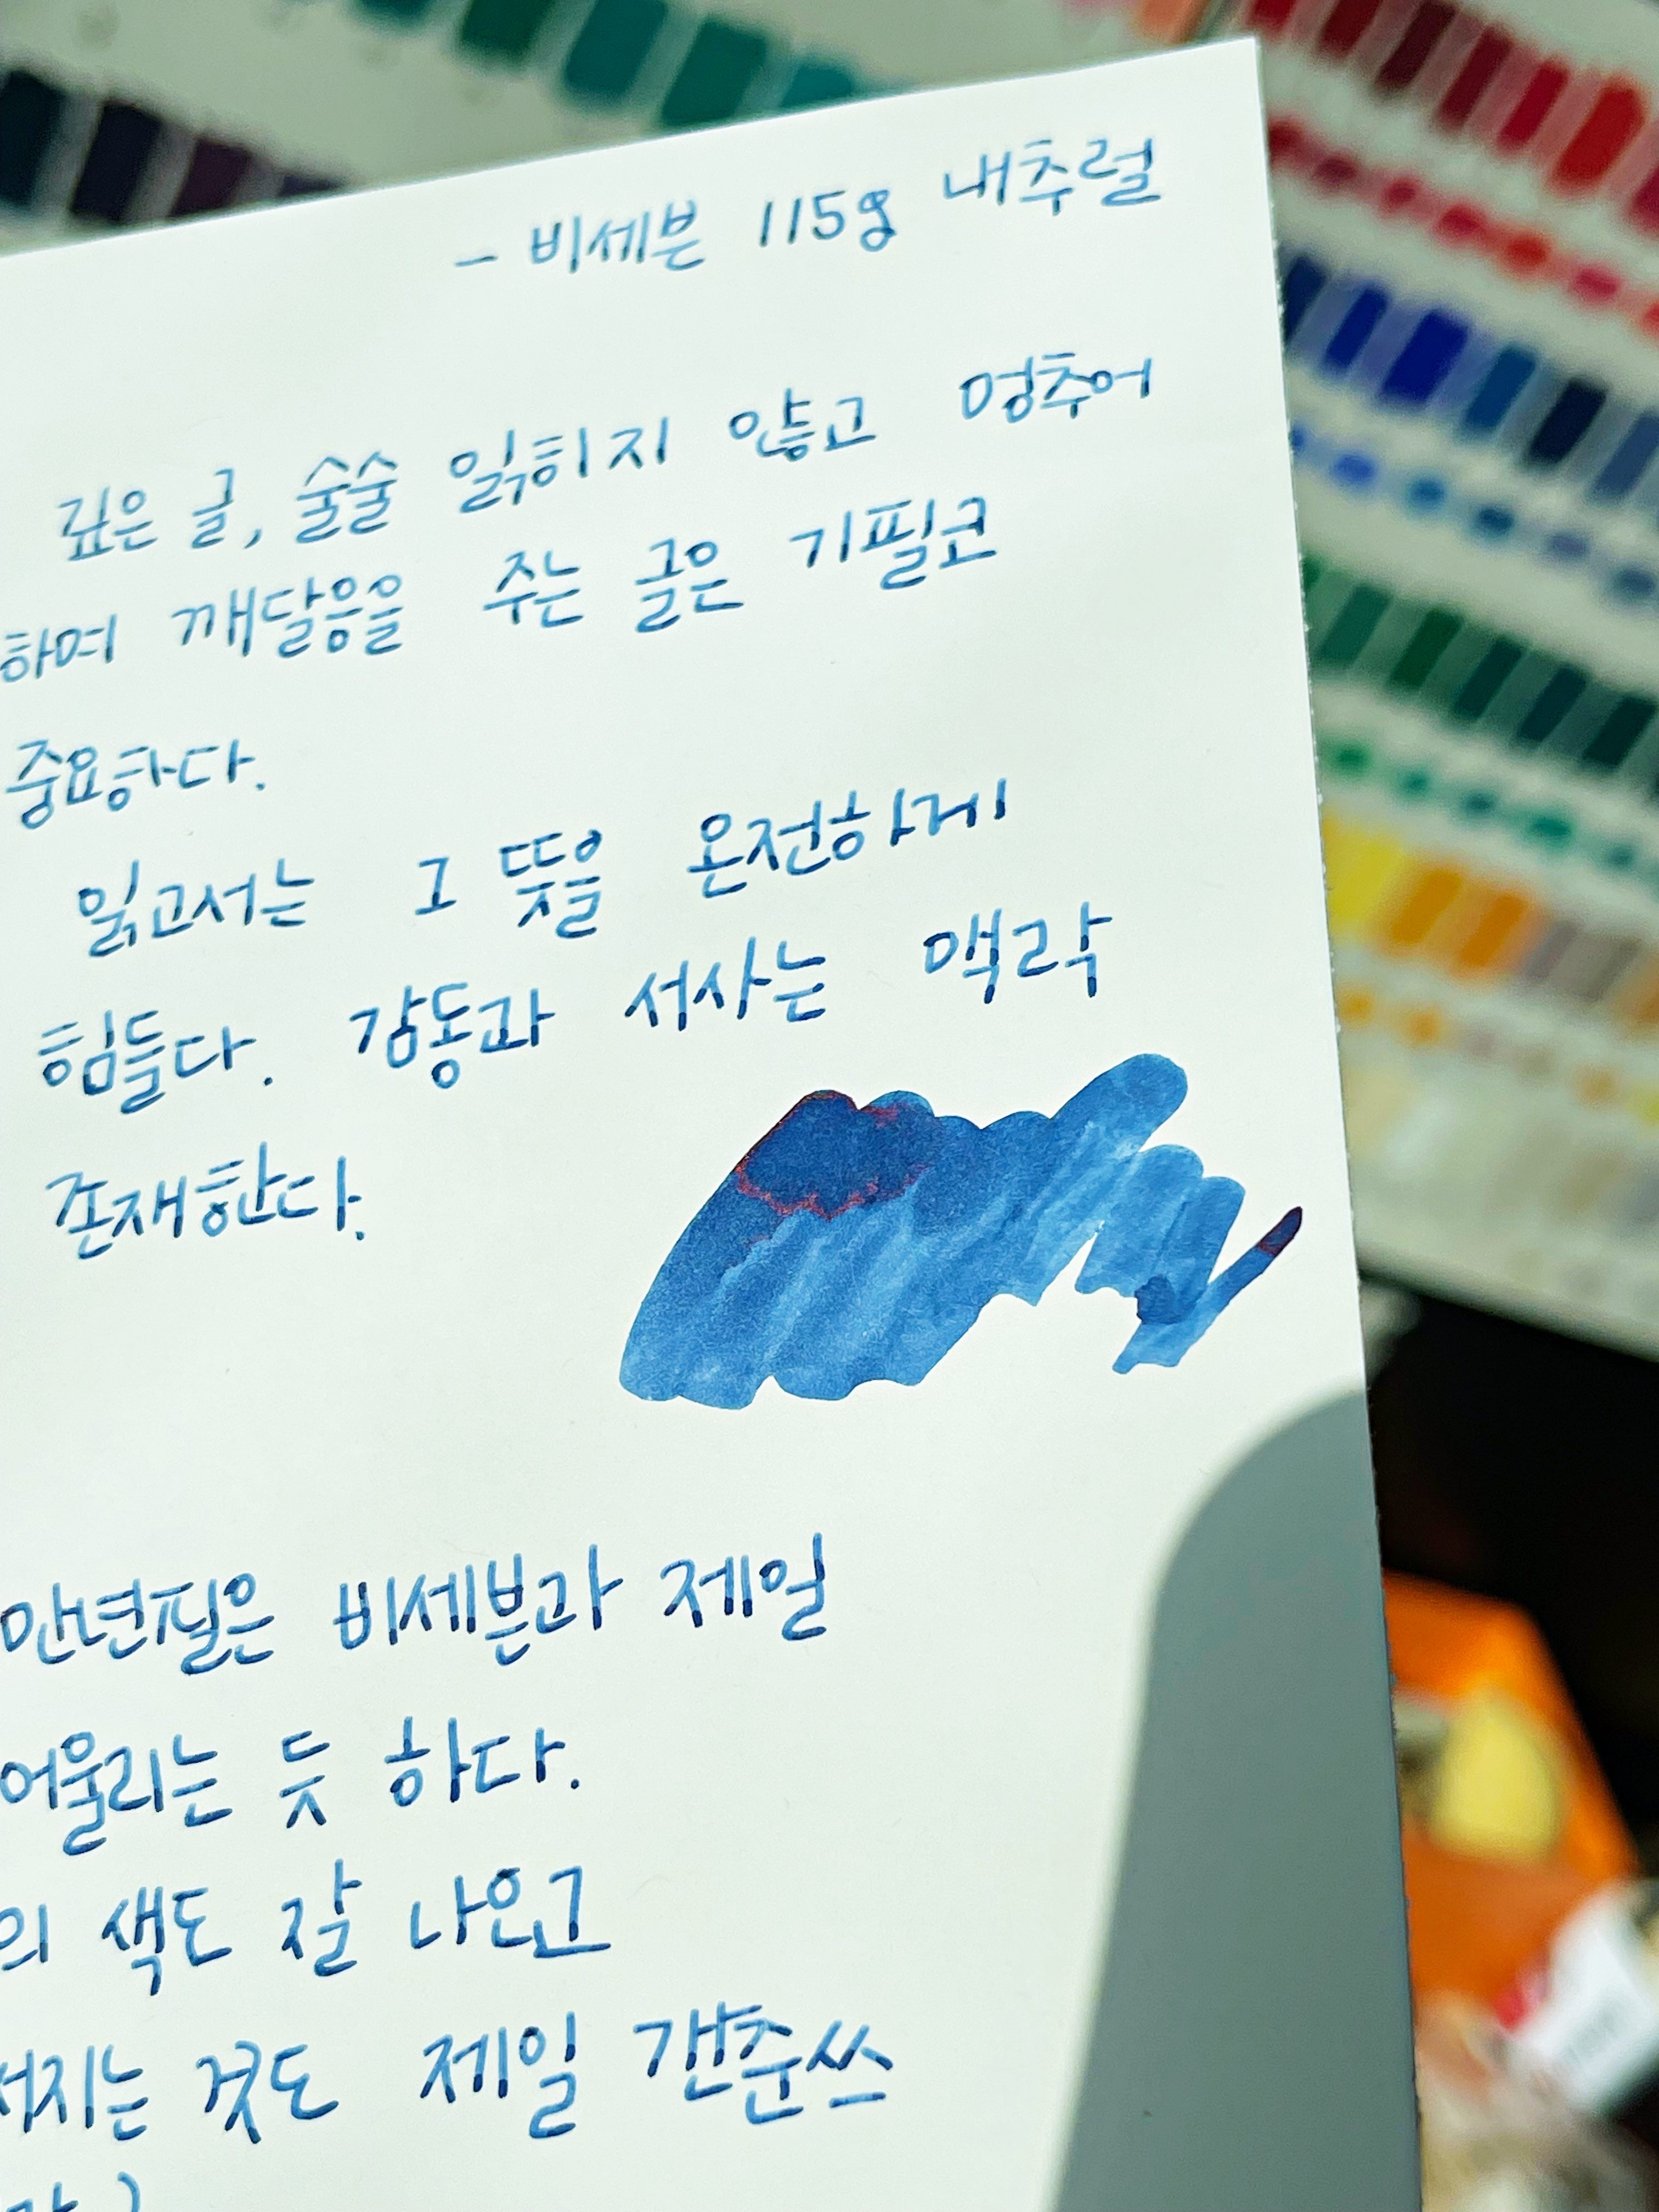 - 비세븐 115g 내추럴
깊은 글, 술술 읽히지 않고 멈추어
하며 깨달음을 주는 글은 기필코
중요하다.
읽고서는 그 뜻을 온전하게
힘들다. 감동과 서사는 맥락
존재한다.
만년필은 비세븐과 제일
어울리는 듯 하다.
의 색도 잘 나오고
지는 것도 제일 갠춘쓰